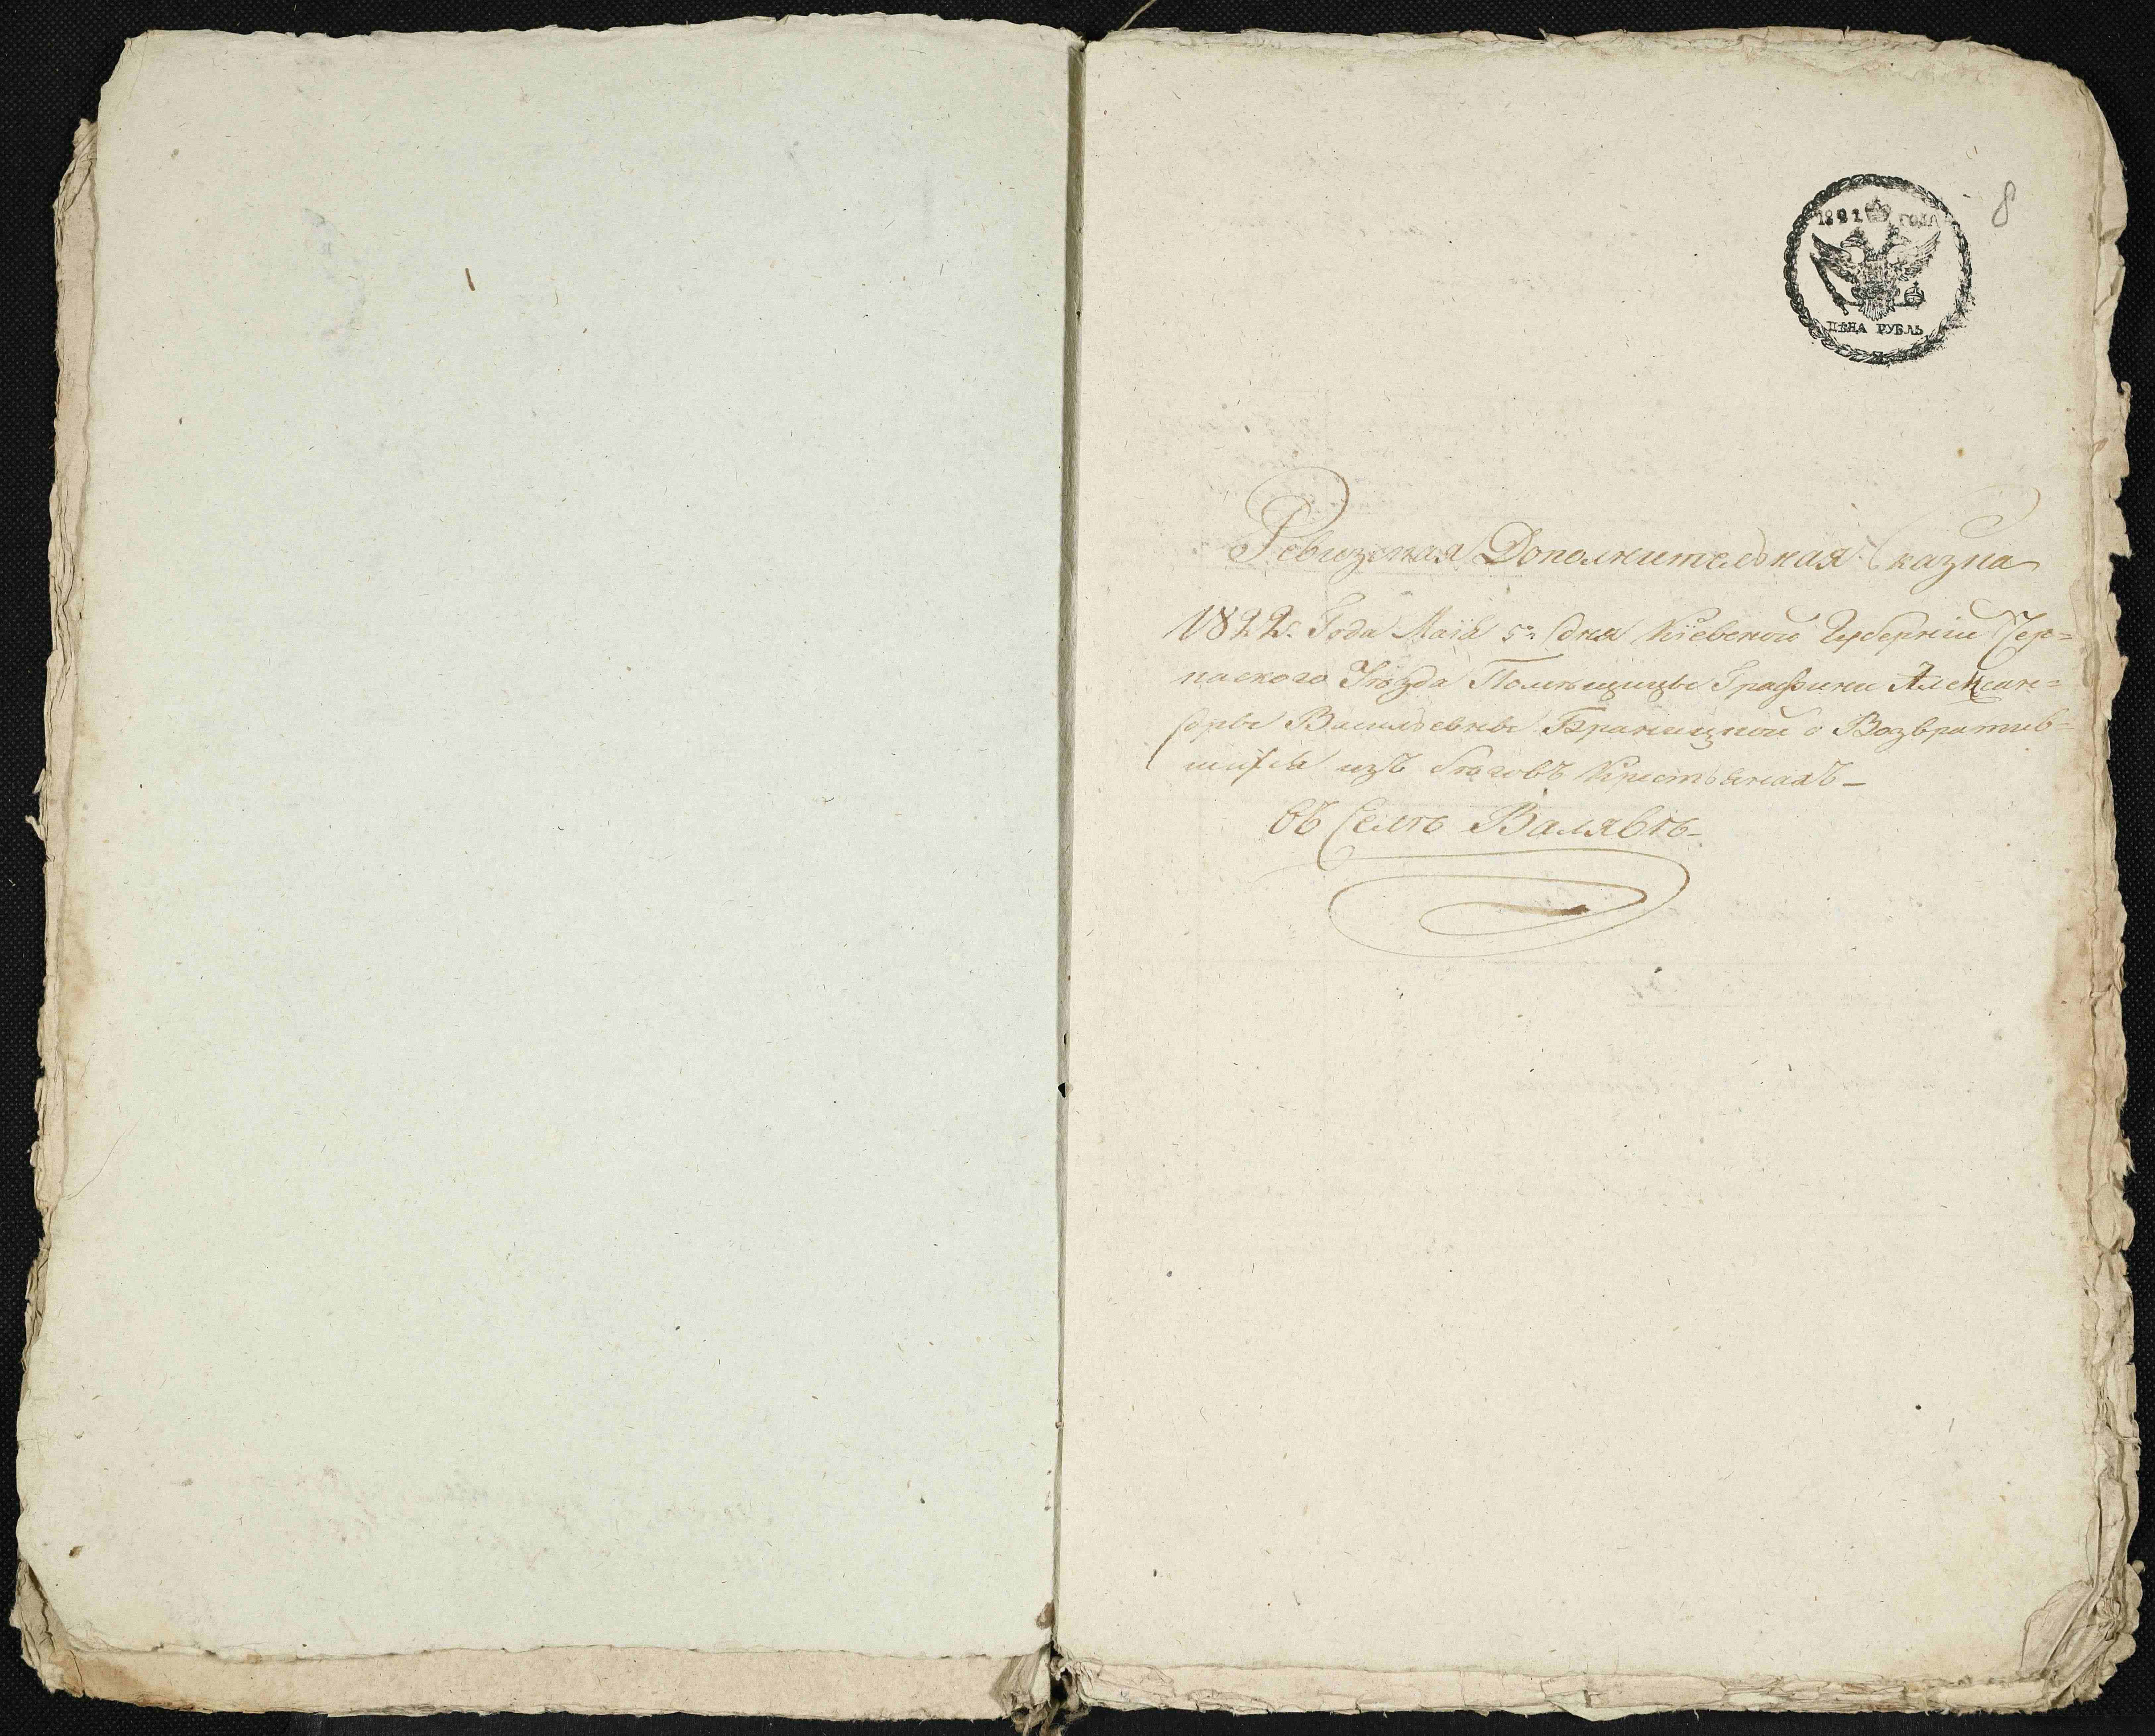 8
1821 ГОДА
ЦѢНА РУБЛЬ
Ревизская Дополнительная Сказка
1822. Года Маія 5го дня Кіевской Губерніи Чер=
каского Уѣзда Помѣщицы Графини Алексан=
дры Васильевны Браницкой о Возвратив=
шихся изъ бѣговъ Крестьянахъ–
въ Селѣ Валявѣ–